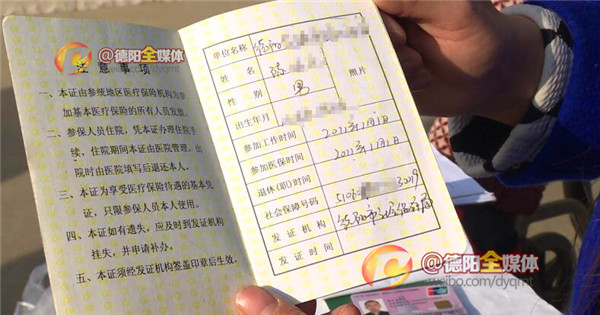 @德阳全媒体
weibo.com/dyqmt
注意事项
一、本证由参统地区医疗保险机构为参
加基本医疗保险的所有人员发放。
二、参保人员住院，凭本证办理住院手
续，住院期间本证由医院管理，出
院时由医院填写后退还本人。
三、本证为享受医疗保险待遇的基本凭
证，只限参保人员本人使用。
四、本证如有遗失，应及时到发证机构
挂失，并申请补办。
五、本证须经发证机构签盖印章后生效。
单位名称
姓名
性别 男
照片
出生年月
参加工作时间 2011年1月1日
参加医保时间 2011年1月1日
退休(职)时间
社会保障号码 5106 3219
发证机构
发证时间
@德阳全媒体
weibo.com/dyqmt